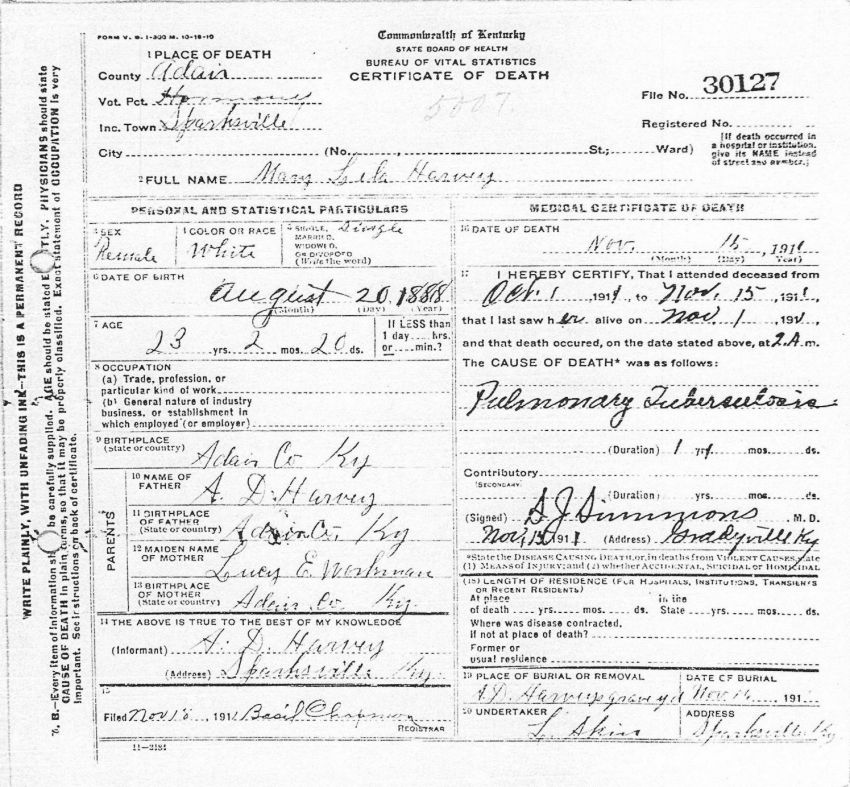 FORM V. S. 1-300 M. 10-18-10
Commonwealth of Kentucky
STATE BOARD OF HEALTH
BUREAU OF VITAL STATISTICS
CERTIFICATE OF DEATH
1 PLACE OF DEATH
County Adair
Vot. Pct. Harmony
Inc. Town Sparksville
City (No. , St.; Ward)
5007.
File No. 30127
Registered No.
[If death occurred in
a hospital or institution,
give its NAME instead
of street and number.]
2 FULL NAME Mary Lela Harvey
PERSONAL AND STATISTICAL PARTICULARS
3 SEX
Female
4 COLOR OR RACE
White
5 SINGLE, Single
MARRIED,
WIDOWED,
OR DIVORCED
(Write the word)
6 DATE OF BIRTH
August 20, 1888
(Month) (Day) (Year)
7 AGE
23 yrs. 2 mos. 20 ds.
If LESS than
1 day hrs.
or min.?
8 OCCUPATION
(a) Trade, profession, or
particular kind of work
(b) General nature of industry
business, or establishment in
which employed (or employer)
9 BIRTHPLACE
(State or country)
Adair Co Ky
PARENTS
10 NAME OF
FATHER
A. D. Harvey
11 BIRTHPLACE
OF FATHER
(State or country)
Adair Co, Ky
12 MAIDEN NAME
OF MOTHER
Lucy E. Workman
13 BIRTHPLACE
OF MOTHER
(State or country)
Adair Co Ky.
14 THE ABOVE IS TRUE TO THE BEST OF MY KNOWLEDGE
(Informant) A. D. Harvey
(Address) Sparksville Ky.
15
Filed Nov 18, 1911 Basil Chapman
REGISTRAR
11-3184
MEDICAL CERTIFICATE OF DEATH
16 DATE OF DEATH
Nov. 15, 1911
(Month) (Day) (Year)
17 I HEREBY CERTIFY, That I attended deceased from
Oct. 1 1911, to Nov. 15, 1911,
that I last saw her alive on Nov. 1, 1911,
and that death occured, on the date stated above, at 2 A. m.
The CAUSE OF DEATH* was as follows:
Pulmonary Tuberculosis
(Duration) 1 yrs. mos. ds.
Contributory
(SECONDARY)
(Duration) yrs. mos. ds.
(Signed) S. J. Simmons M. D.
Nov, 15, 1911 (Address) Gradyville Ky
*State the DISEASE CAUSING DEATH, or, in deaths from VIOLENT CAUSES, state
(1) MEANS OF INJURY; and (2) whether ACCIDENTAL, SUICIDAL OR HOMICIDAL
(18) LENGTH OF RESIDENCE (FOR HOSPITALS, INSTITUTIONS, TRANSIENTS
OR RECENT RESIDENTS)
At place In the
of death yrs. mos. ds. State yrs. mos. ds.
Where was disease contracted,
if not at place of death?
Former or
usual residence
19 PLACE OF BURIAL OR REMOVAL
A. D. Harveys graveyd
DATE OF BURIAL
Nov 16, 191
20 UNDERTAKER
L. Akin
ADDRESS
Sparksville Ky.
WRITE PLAINLY, WITH UNFADING INK—THIS IS A PERMANENT RECORD
N. B.—Every item of information should be carefully supplied. AGE should be stated EXACTLY. PHYSICIANS should state
CAUSE OF DEATH in plain terms, so that it may be properly classified. Exact statement of OCCUPATION is very
important. See instructions on back of certificate.